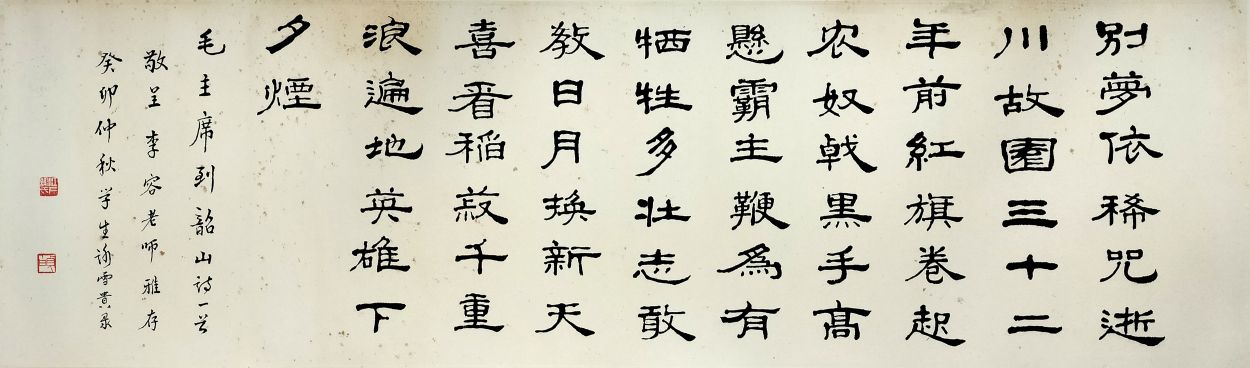 别夢依稀咒逝
川故園三十二
年前紅旗卷起
农奴戟黑手髙
懸霸主鞭為有
牺牲多壮志敢
教日月换新天
喜看稻菽千重
浪遍地英雄下
夕煙
毛主席到韶山诗一首
敬呈 李容老师雅存
癸卯仲秋学生 雪贵录